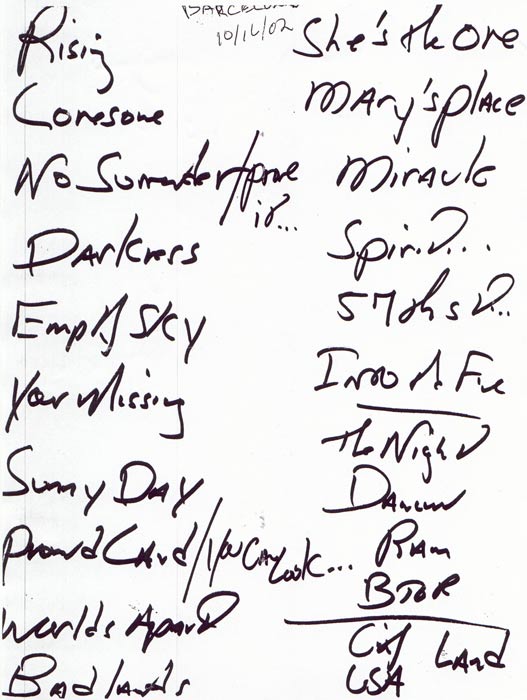 BARCELONA
10/16/02
Rising
Lonesome
No Surrender/prove
it...
Darkness
Empty Sky
Your Missing
Sunny Day
Promised Land/You Can
Look...
Worlds Apart
Badlands
She's the One
Mary's place
Miracle
Spirit...
57th st...
Into the Fire
The Night
Dancin
Ram
BTOR
City
Land
USA